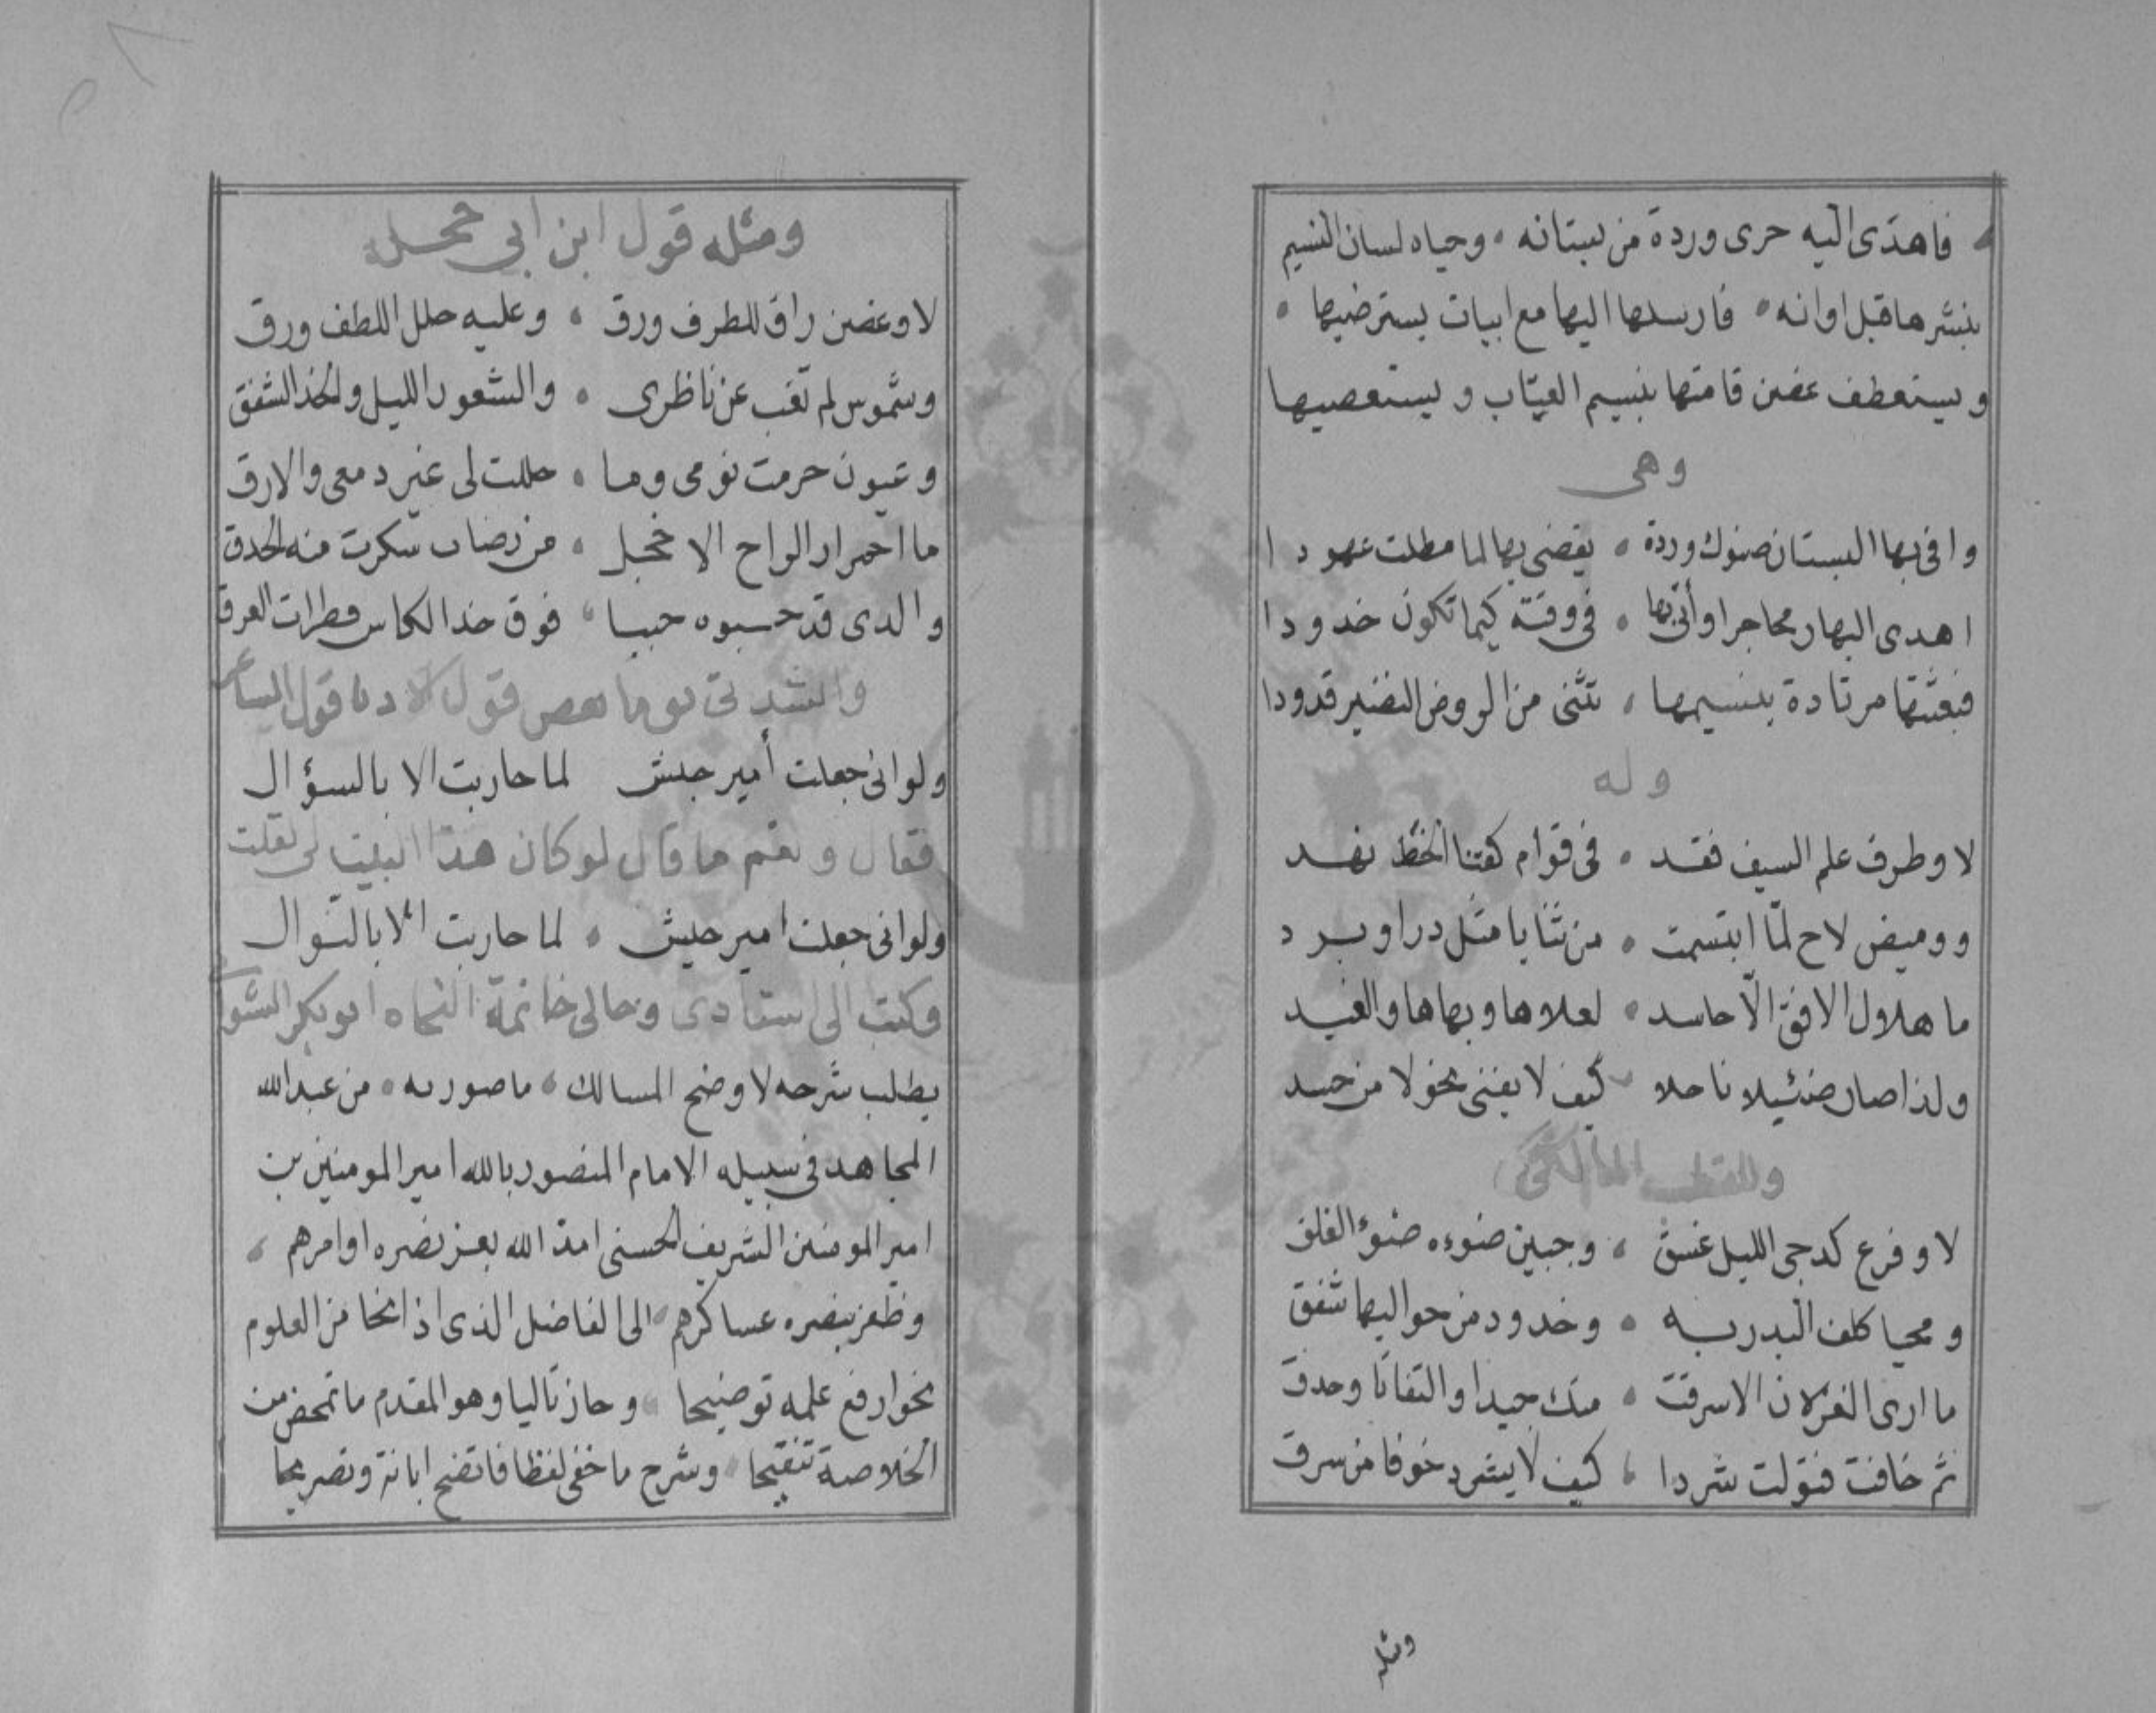 فاهدى اليه حرى وردة من بستانه ، وحياه لسان النسيم
بنشرها قبل اوانه ، فارسلها اليها مع ابيات يسترضيها ،
ويستعطف غصن قامتها بنسيم العتاب ويستعصيها
وهى
وافى بها البستان صنوك وردة ، يقضى بها لما مطلت عهودا
اهدى البهار محاجرا وأتى بها ، فى وقته كيما تكون خدودا
فبعثتها مرتادة بنسيمها ، تثنى من الروض النضير قدودا
وله
لا وطرف علم السيف فقد ، فى قوام كقنا الخط نهد
ووميض لاح لمّا ابتسمت ، من ثنايا مثل در او برد
ما هلال الافق الّا حاسد ، لعلاها وبهاها والغيد
ولذا صار ضئيلا ناحلا كيف لا يفنى نحولا من حسد
وللقطب المالكى
لا وفرع كدجى الليل غسق ، وجبين ضوءه ضوء الفلق
ومحيا كلف البدر به ، وخدود من حواليها شفق
ما ارى الغزلان الا سرقت ، منك جيدا والتفاتا وحدق
ثم خافت فتولت شردا ، كيف لا يشرد خوفا من سرق
ومثله
ومثله قول ابن ابى حجله
لا وغصن راق للطرف ورق ، وعليه حلل اللطف ورق
وشموس لم تغب عن ناظرى ، والشعور الليل والخد الشفق
وعيون حرمت نومى وما ، حللت لى غير دمعى والارق
ما احمرار الراح الا خجل ، من رضاب سكرت منه الحدق
والدى قد حسبوه حببا ، فوق خد الكاس قطرات العرق
وانشدنى يوما بعض قول الادبا قول الشاعر
ولوانى جعلت أمير جيش لما حاربت الا بالسؤال
فقال ونعم ما قال لو كان هذا البيت لى لقلت
ولوانى جعلت امير جيش ، لما حاربت الا بالنوال
وكتب الى استادى وخالى خاتمة النحاه ابو بكر الشنوا
يطلب شرحه لاوضح المسالك ، ما صورته ، من عبد الله
المجاهد فى سبيله الامام المنصور بالله امير المومنين بن
امير المومنين الشريف الحسنى امد الله بعز نصره اوامرهم ،
وظفر بنصره عساكرهم الى الفاضل الذى اذا نحا من العلوم
نحوا رفع علمه توضيحا وحاز تاليا وهو المقدم ما تمحض من
الخلاصة تنقيحا وشرح ما خفى لفظا فاتضح ابانة وتصريحا